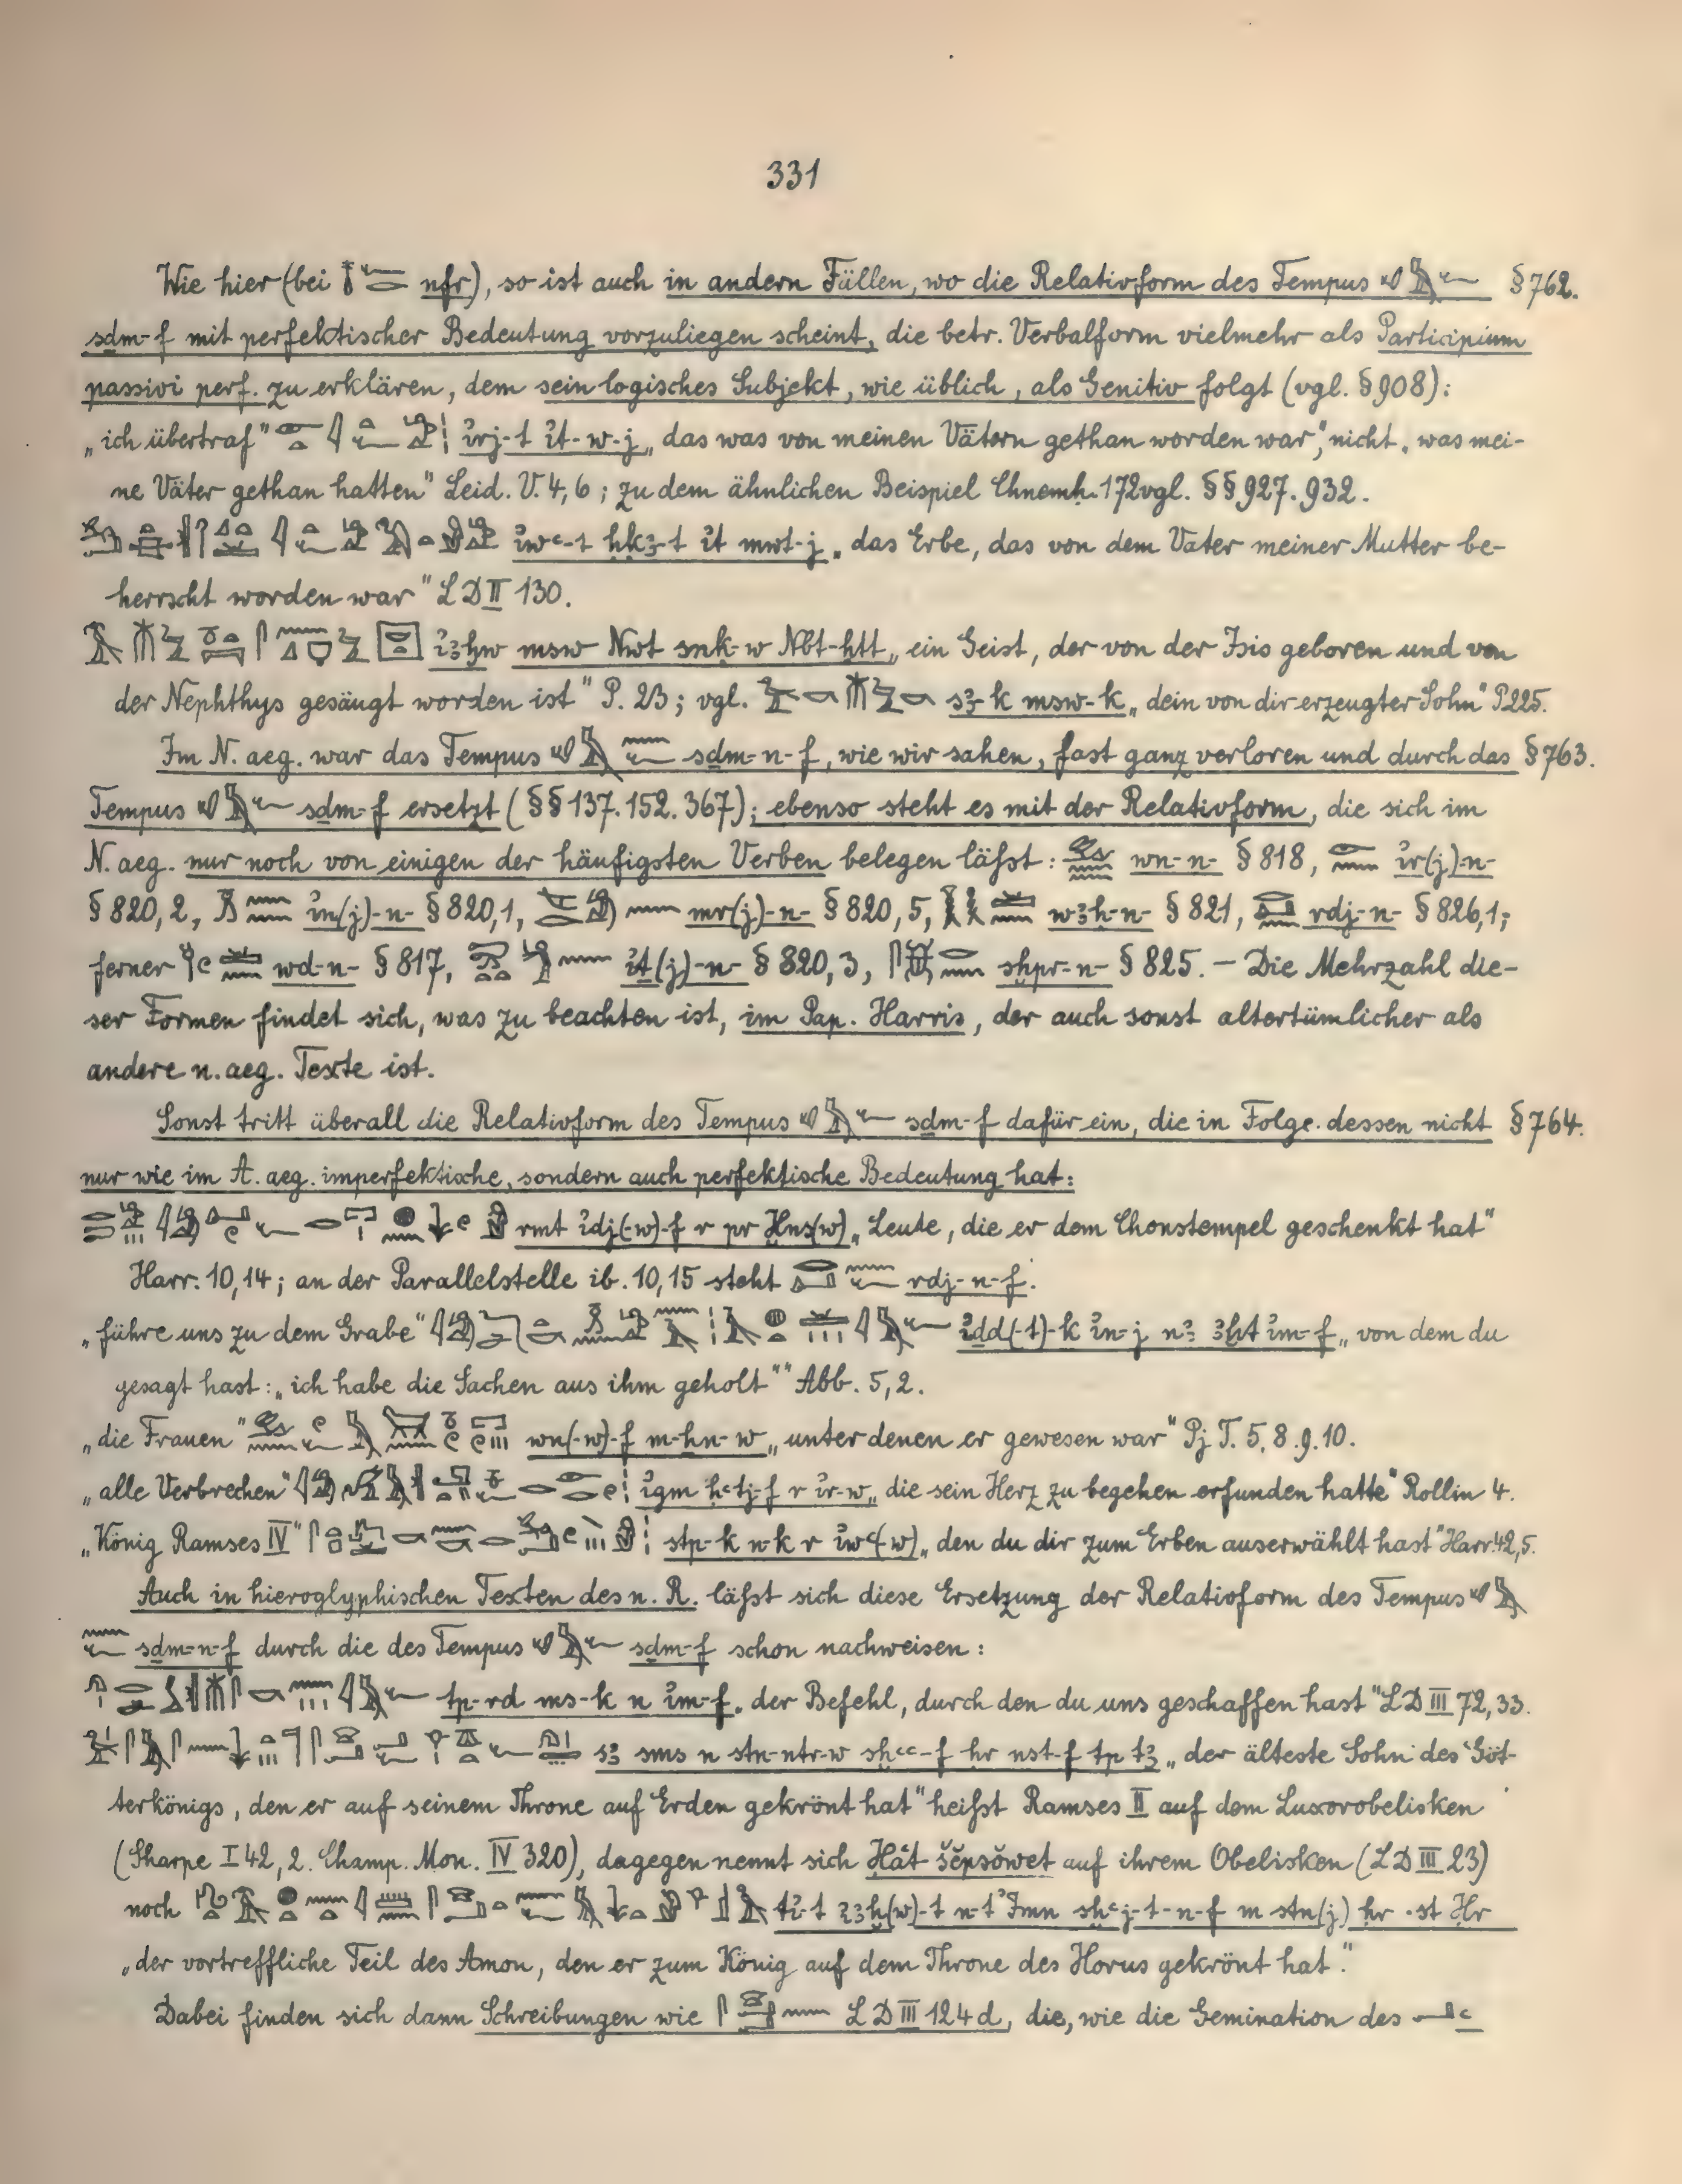 331
Wie hier (bei nfr), so ist auch in andern Fällen, wo die Relativform des Tempus § 762.
sdm-f mit perfektischer Bedeutung vorzuliegen scheint, die betr. Verbalform vielmehr als Participium
passivi perf. zu erklären, dem sein logisches Subjekt, wie üblich, als Genitiv folgt (vgl. § 908):
„ich übertraf" ỉrj-t ỉt-w-j „das was von meinen Vätern gethan worden war", nicht „was mei-
ne Väter gethan hatten" Leid. V. 4, 6; zu dem ähnlichen Beispiel Chnemḥ. 172 vgl. §§ 927. 932.
ỉwꜥ-t ḥḳꜣ-t ỉt mwt-j „das Erbe, das von dem Vater meiner Mutter be-
herrscht worden war" LD II 130.
ỉꜣḫw msw Nwt snḳ-w Nbt-ḥtt „ein Geist, der von der Isis geboren und von
der Nephthys gesäugt worden ist" P. 23; vgl. sꜣ-k msw-k „dein von dir erzeugter Sohn" P 225.
Im N. aeg. war das Tempus sdm-n-f, wie wir sahen, fast ganz verloren und durch das § 763.
Tempus sdm-f ersetzt (§§ 137. 152. 367); ebenso steht es mit der Relativform, die sich im
N. aeg. nur noch von einigen der häufigsten Verben belegen läßt: wn-n- § 818, ỉr(j)-n-
§ 820, 2, ỉn(j)-n- § 820, 1, mr(j)-n- § 820, 5, wꜣḥ-n- § 821, rdj-n- § 826, 1;
ferner wd-n- § 817, ỉt(j)-n- § 820, 3, sḫpr-n- § 825. — Die Mehrzahl die-
ser Formen findet sich, was zu beachten ist, im Pap. Harris, der auch sonst altertümlicher als
andere n. aeg. Texte ist.
Sonst tritt überall die Relativform des Tempus sdm-f dafür ein, die in Folge dessen nicht § 764.
nur wie im A. aeg. imperfektische, sondern auch perfektische Bedeutung hat:
rmt ỉdj(-w)-f r pr Ḫns(w) „Leute, die er dem Chonstempel geschenkt hat"
Harr. 10, 14; an der Parallelstelle ib. 10, 15 steht rdj-n-f.
„führe uns zu dem Grabe" ỉdd(-t)-k ỉn-j nꜣ ꜣḫt ỉm-f „von dem du
gesagt hast: „ich habe die Sachen aus ihm geholt"" Abb. 5, 2.
„die Frauen" wn(-w)-f m-ḫn-w „unter denen er gewesen war" Pj T. 5, 8. 9. 10.
„alle Verbrechen" ỉgm ḥꜥtj-f r ỉr-w „die sein Herz zu begehen erfunden hatte" Rollin 4.
„König Ramses IV" stp-k n-k r ỉwꜥ(w) „den du dir zum Erben auserwählt hast" Harr. 42, 5.
Auch in hieroglyphischen Texten des n. R. läßt sich diese Ersetzung der Relativform des Tempus
sdm-n-f durch die des Tempus sdm-f schon nachweisen:
tp-rd ms-k n ỉm-f „der Befehl, durch den du uns geschaffen hast" LD III 72, 33.
sꜣ sms n stn-ntr-w sḫꜥꜥ-f ḥr nst-f tp tꜣ „der älteste Sohn des Göt-
terkönigs, den er auf seinem Throne auf Erden gekrönt hat" heißt Ramses II auf dem Luxorobelisken
(Sharpe I 42, 2. Champ. Mon. IV 320), dagegen nennt sich Ḥāt šĕpsŏwet auf ihrem Obelisken (LD III 23)
noch tỉ-t ỉꜣḫ(w)-t n-t Ỉmn sḫꜥj-t-n-f m stn(j) ḥr st Ḥr
„der vortreffliche Teil des Amon, den er zum König auf dem Throne des Horus gekrönt hat".
Dabei finden sich dann Schreibungen wie LD III 124 d, die, wie die Gemination des ꜥ